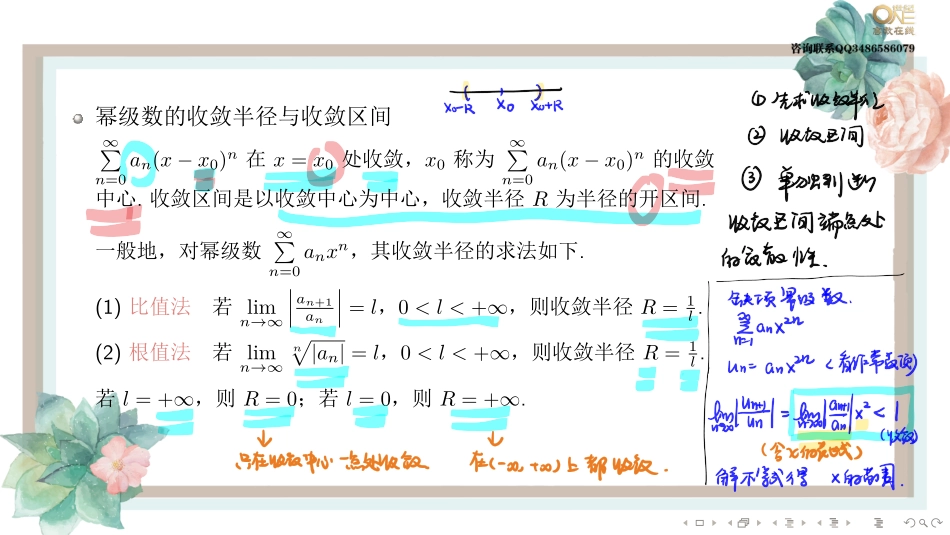 高数在线
咨询联系QQ3486586079
x₀-R x₀ x₀+R
幂级数的收敛半径与收敛区间
∞∑n=0 aₙ(x − x₀)ⁿ 在 x = x₀ 处收敛，x₀ 称为 ∞∑n=0 aₙ(x − x₀)ⁿ 的收敛
中心. 收敛区间是以收敛中心为中心，收敛半径 R 为半径的开区间.
一般地，对幂级数 ∞∑n=0 aₙxⁿ，其收敛半径的求法如下.
(1) 比值法 若 lim n→∞ |aₙ₊₁/aₙ| = l，0 < l < +∞，则收敛半径 R = 1/l.
(2) 根值法 若 lim n→∞ ⁿ√|aₙ| = l，0 < l < +∞，则收敛半径 R = 1/l.
若 l = +∞，则 R = 0；若 l = 0，则 R = +∞.
只在收敛中心一点处收敛
在(-∞ +∞)上都收敛.
① 先求收敛半径
② 收敛区间
③ 单独判断
收敛区间端点处
的敛散性.
缺项幂级数.
∞∑n=1 aₙx²ⁿ
uₙ= aₙx²ⁿ (看作常数项)
lim n→∞ |uₙ₊₁/uₙ| = lim n→∞ |aₙ₊₁/aₙ| x² < 1
(收敛)
(含x的表达式)
解不等式得 x的范围.